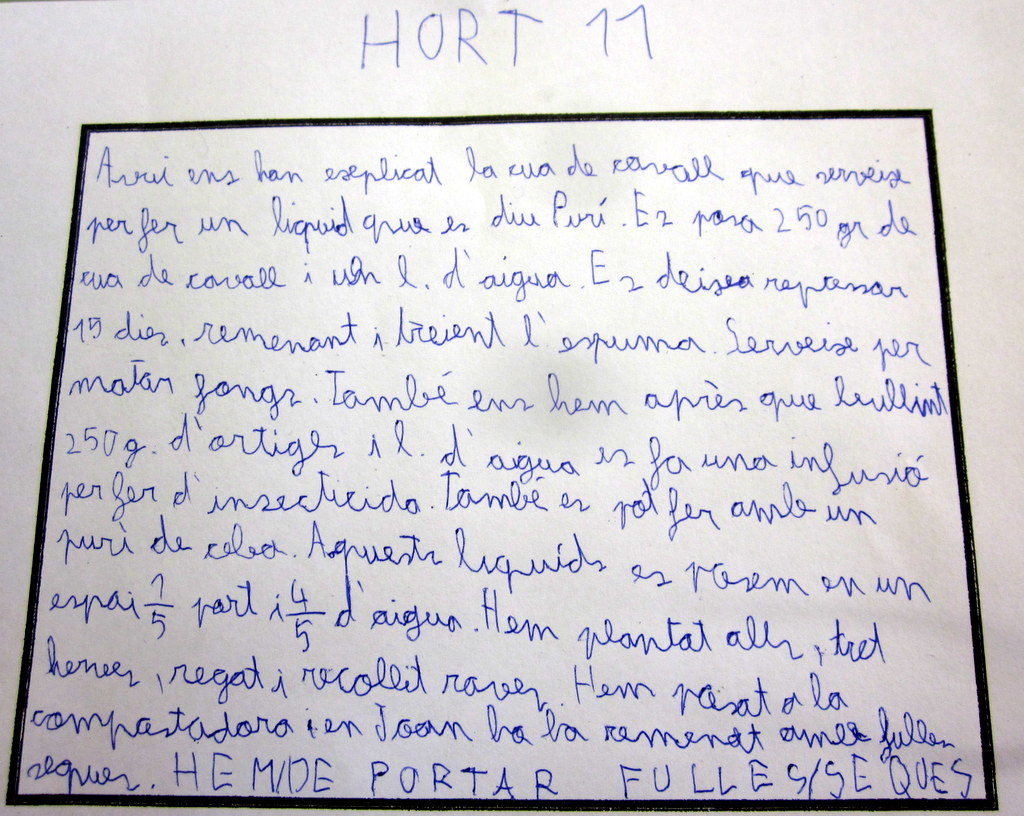 HORT 11
Avui ens han explicat la cua de cavall que serveix
per fer un liquid que es diu Purí. Es posa 250 gr de
cua de cavall i un l. d'aigua. Es deixa repossar
15 dies, remenant i treient l'espuma. Serveix per
matar fongs. També ens hem après que bullint
250 g. d'ortiges i l. d'aigua es fa una infusió
per fer d'insecticida. També es pot fer amb un
purí de ceba. Aquests liquids es posem en un
espai 1/5 part i 4/5 d'aigua. Hem plantat alls, tret
herbes, regat i recollit raves. Hem posat a la
compostadora i en Joan ho ha remenat amb fulles
seques. HEM/DE PORTAR FULLES/SEQUES